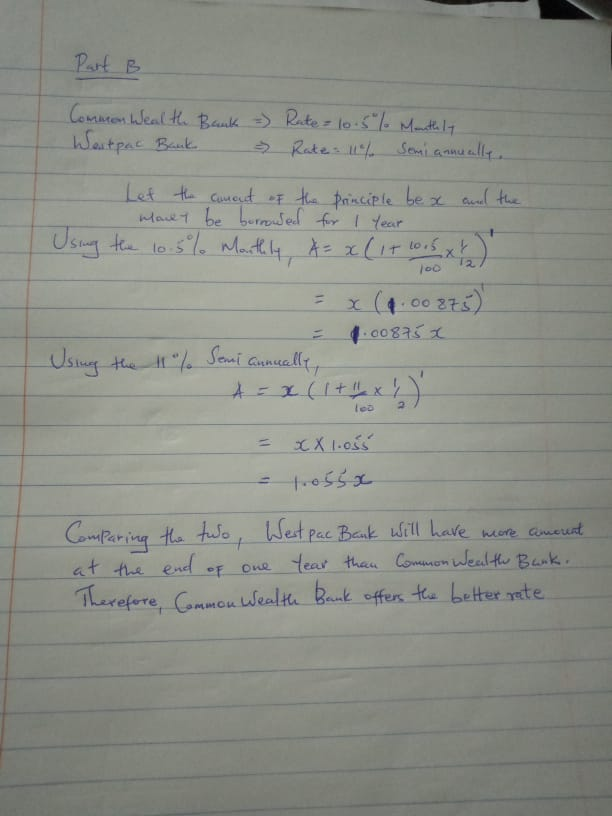 Part B
CommonWealth Bank ⇒ Rate = 10.5% Monthly
Westpac Bank ⇒ Rate = 11% Semi annually.
Let the amout of the principle be x and the
money be borrowed for 1 Year
Using the 10.5% Monthly, A = x(1 + 10.5/100 × 1/12)^1
= x (1.00875)^1
= 1.00875 x
Using the 11% Semi annually,
A = x(1 + 11/100 × 1/2)^1
= x X 1.055
= 1.055x
Comparing the two, Westpac Bank will have more amount
at the end of one Year than CommonWealth Bank.
Therefore, CommonWealth Bank offers the better rate